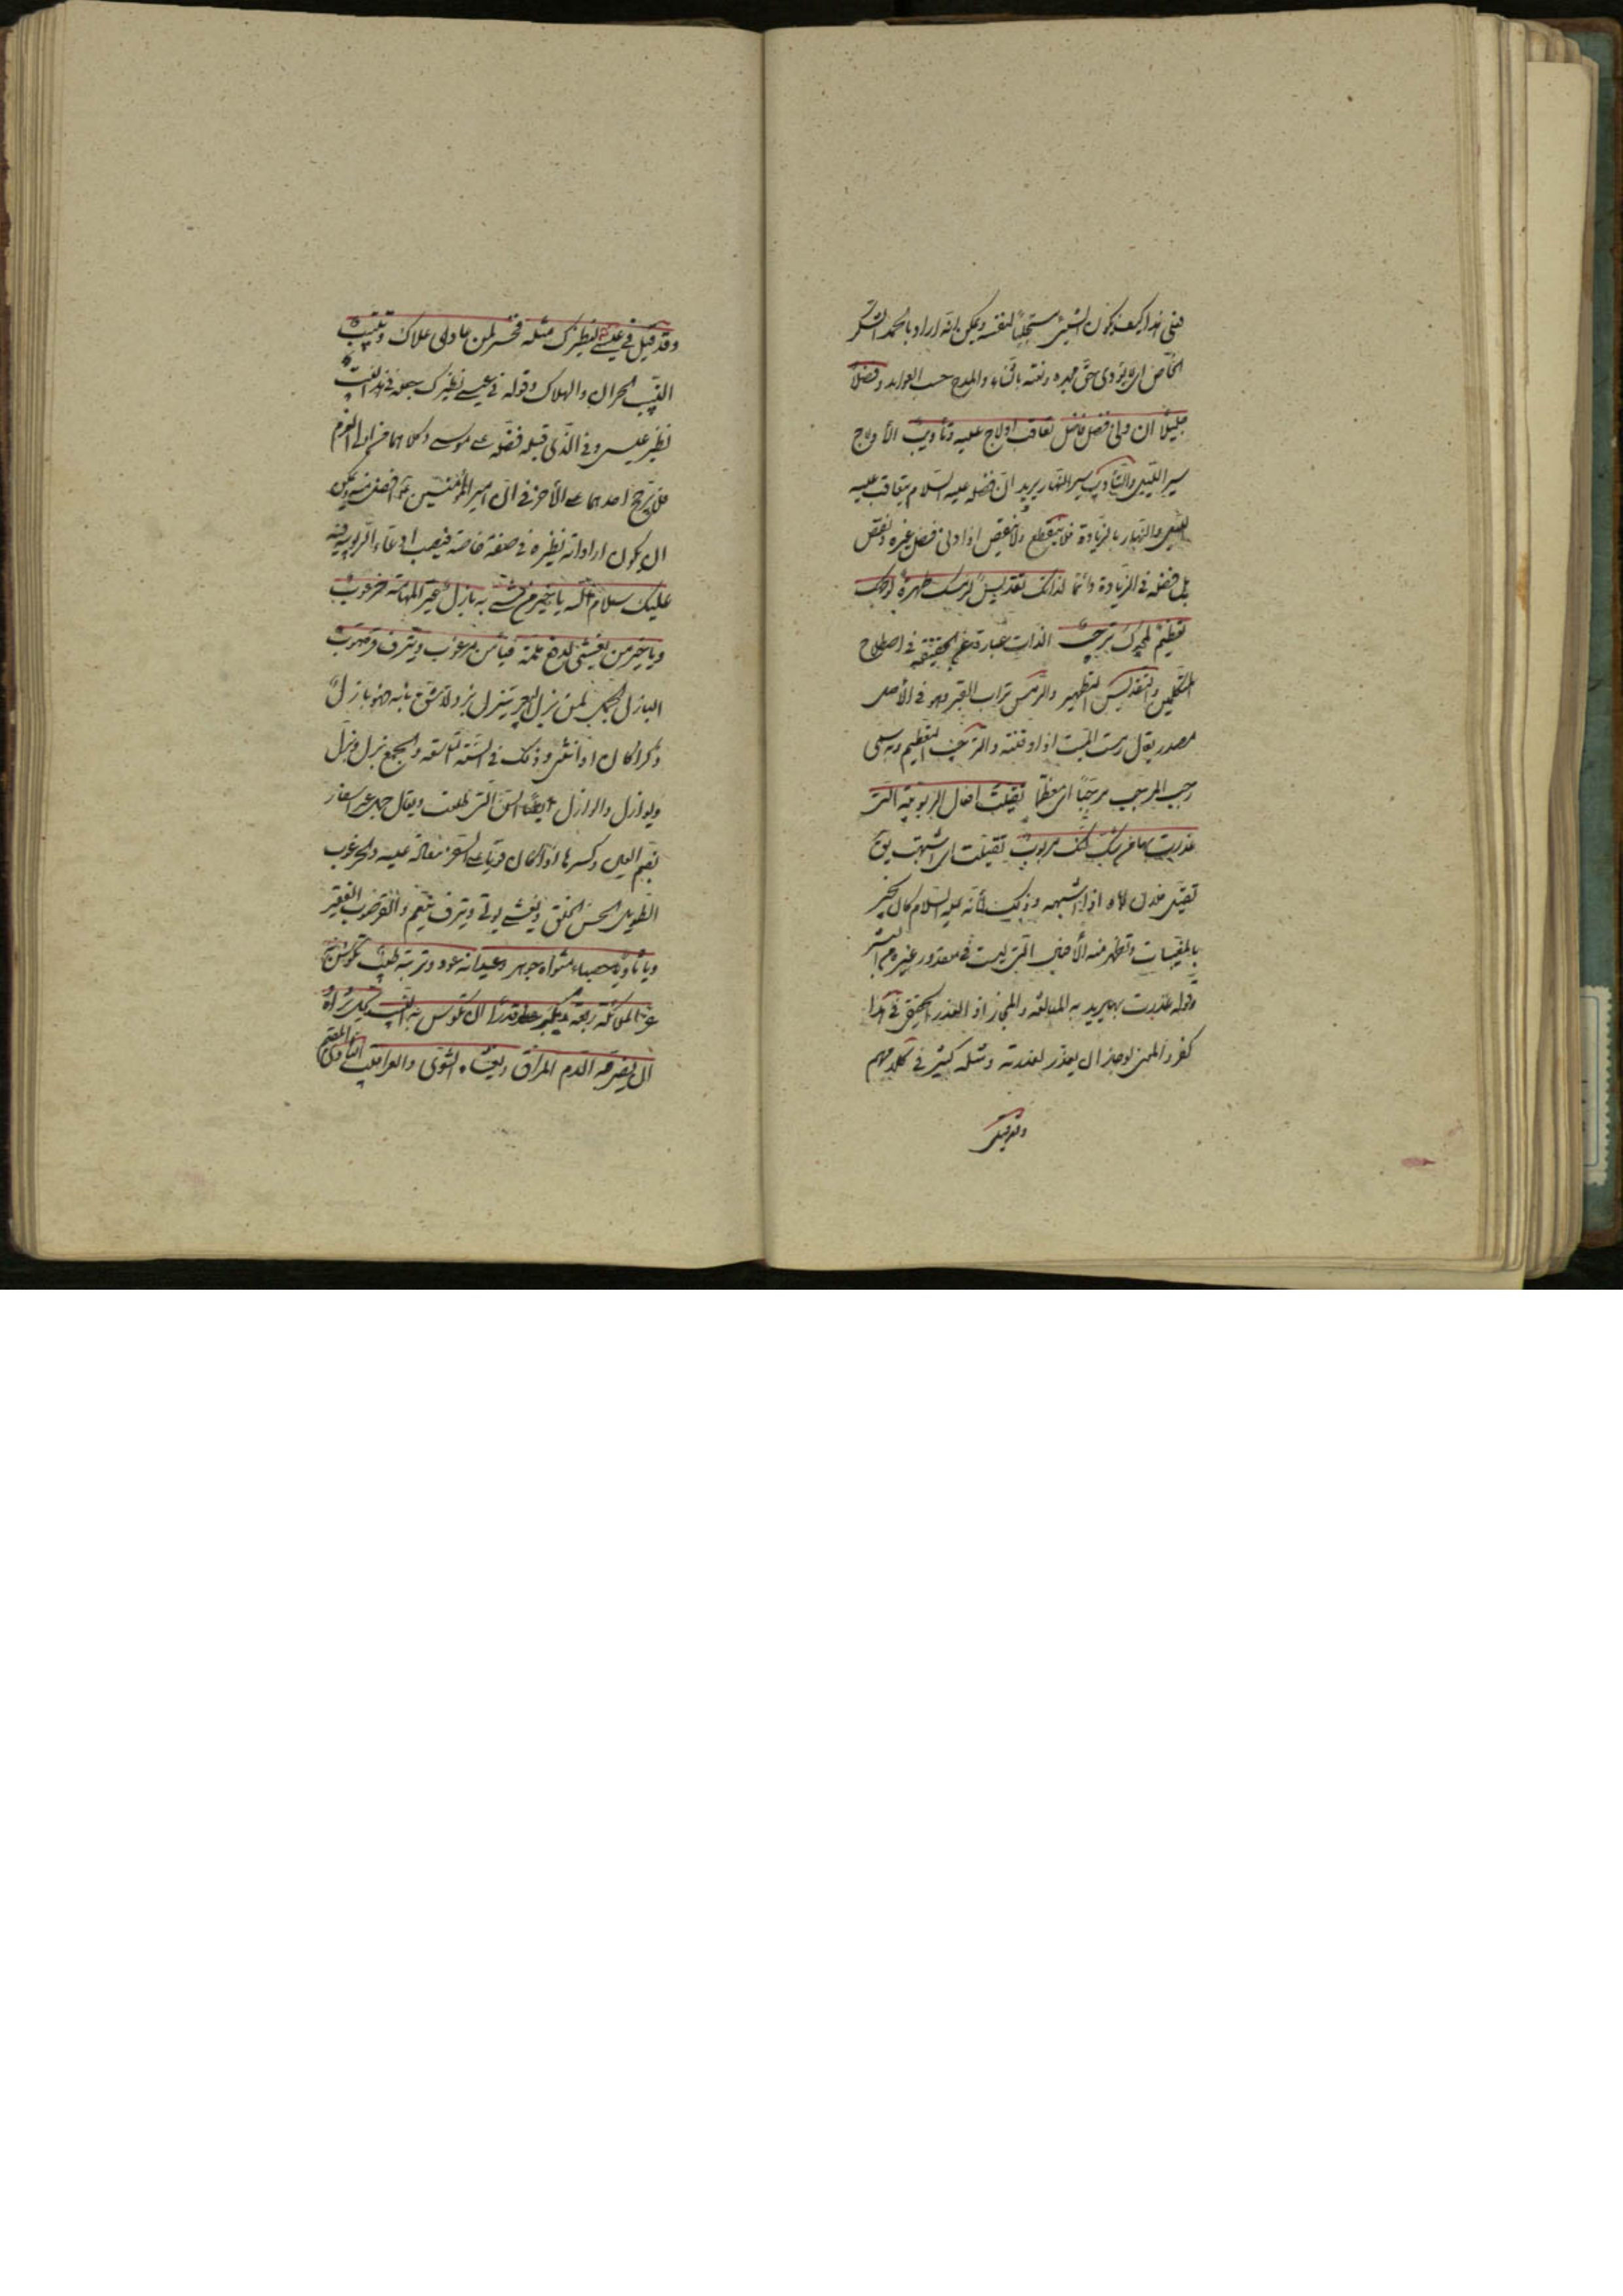 فعلى هذا كيف يكون الشيء مستجلبًا لنفسه ويمكن انّه اراد بالحمد الشكر
الخاصّ اى يؤدى حقّ مجده ونعته بالثناء والمدح حسب العوايد وفضلًا
جليلًا ان ونى فضل فاضل تعاقب ادلاج عليه وتأويب الأدلاج
سير الليل والتأويب سير النهار يريد انّ فضله عليه السّلام يتعاقب عليه
الليل والنهار بالزّيادة فلا ينقطع ولا ينقص اذا ونى فضل غيره ونقص
بل فضله فى الزيادة دائمًا لذاتك تقديس لرمسك طهرة لوجهك
تعظيم لمجدك ترجيب الذات عبارة عن الحقيقة فى اصطلاح
المتكلّمين والتقديس التطهير والرّمس تراب القبر وهو فى الأصل
مصدر يقال رمست الميّت اذا دفنته والترجيب التعظيم وبه سمى
رجب المرجّب مرجّبًا اى معظّمًا تقيّلت افعال الربوبيّة التى
عذرت بها من شكّ انّك مربوب تقيّلت اى اشبهت يقال
تقيّل فلان اباه اذا اشبهه وذلك لأنّه عليه السّلام كان يخبر
بالمغيبات وتظهر منه الأفعال الّتى ليست فى مقدور غيره من البشر
وقوله عذرت بها يريد به المبالغة والمجاز اذ العذر الحقيقى فى هذا
كفر والمعنى لو جاز ان يعذر لعذرته ومثله كثير فى كلامهم
وقد قيل
وقد قيل فى عيسى نظيرك مثله فخسر لمن عادى علاك وتتبيب
التتبيب الخسران والهلاك وقوله فى عيسى نظيرك جعله فى هذا البيت
نظير عيسى وفى الّذى قبله فضّله على موسى وكلاهما من اولى العزم
فلا ترجّح احدهما على الأخر فى انّ امير المؤمنين ع افضل منه ويمكن
ان يكون اراد انه نظيره فى صفة خاصّة فيصب ادعاء الربوبية فيه
عليك سلام اللّه يا خير من مشى به بازل عبر المهامة خرعوب
ويا خير من يغشى لدفع ملمّة فيأمن مرعوب ويترف قرضوب
البازل الجمل لمن بزل البعير يبزل بزولا شقّ نابه فهو بازل
ذكرا كان او انثى وذلك فى السّنة التاسعة والجمع بزل وبزّل
وبوازل والبازل ايضًا السنّ الّتى طلعت ويقال جمل عبر اسفار
بضم العين وكسرها اذا كان قويّا على السّفر معالة عليه والخرعوب
الطّويل الحسن الخلق ويغشى يؤتى ويترف ينعّم والقرضوب الفقير
ويا ثاويًا حصباء مثواه جوهر وعيدانه عود وتربته طيب تكوس بح
عز الملائكة رفعة ويكبر قدرًا ان تكوس به النيب يجلّ ثراه
ان يضرّجه الدّم المراق ويغشاه الشّوى والعراقيب الثاوى المقيم